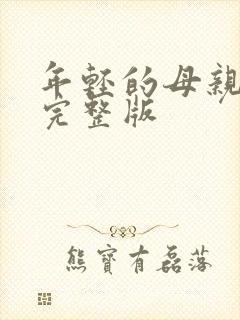 年轻的母亲
完整版
熊寶有磊落